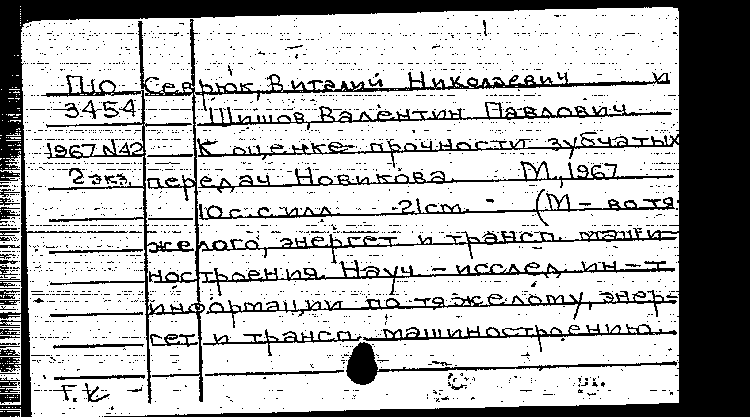 П10 Севрюк, Виталий Николаевич и
3454 Шишов, Валентин Павлович.
1967 N42 К оценке прочности зубчатых
2 экз. передач Новикова. М., 1967
10 с. с илл. 21 см. (М-во тя-
желого, энергет и трансп. маши-
ностроения. Науч-исслед. ин-т
информации по тяжелому, энер-
гет и трансп. машиностроению.
Г.К